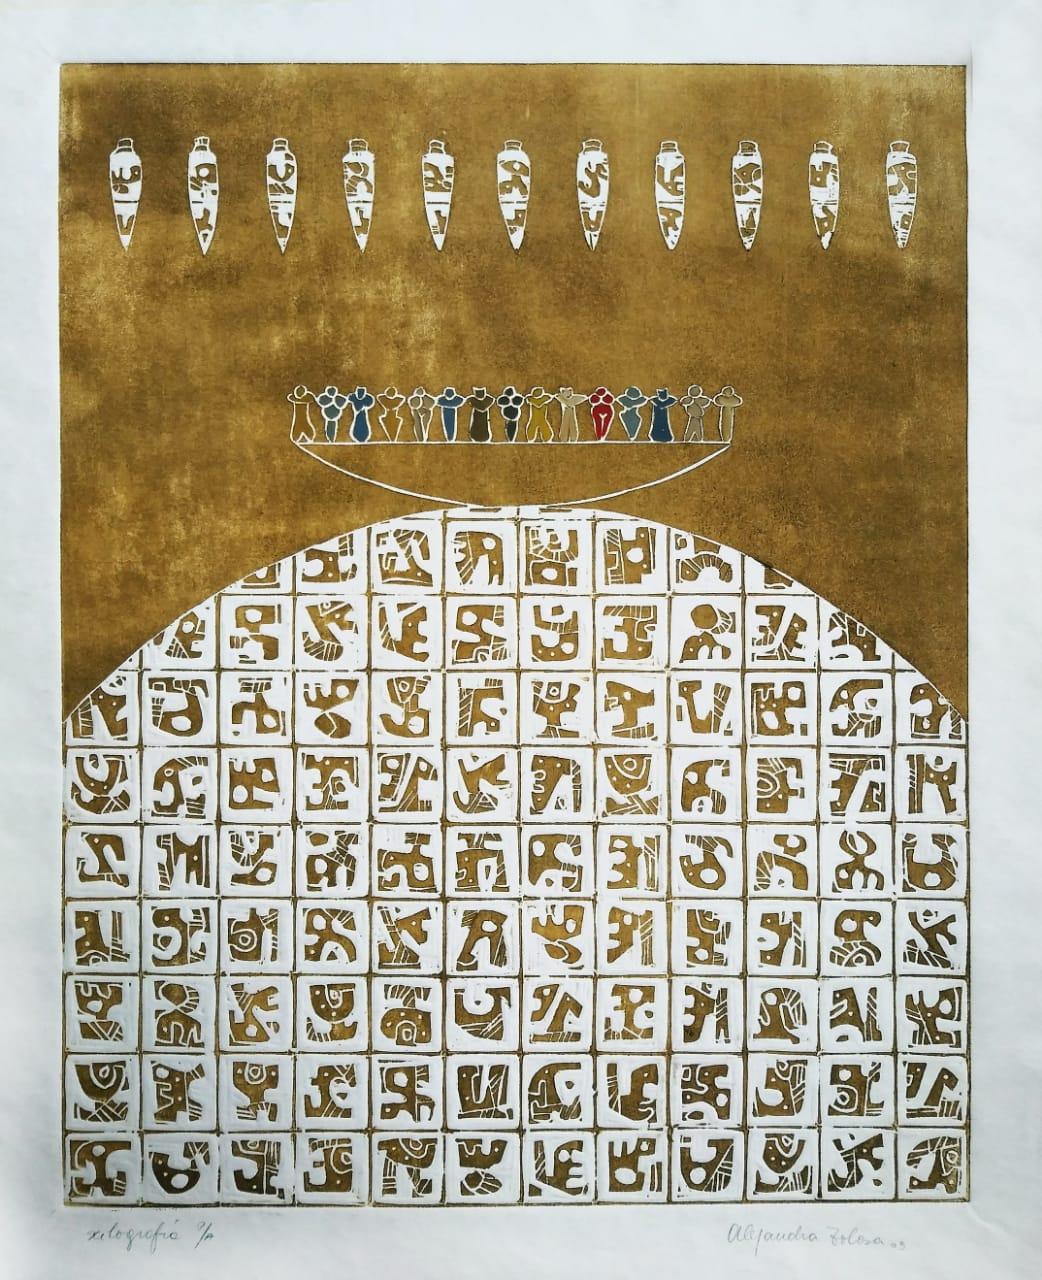 xilografía P/A
Alejandra Tolosa 03